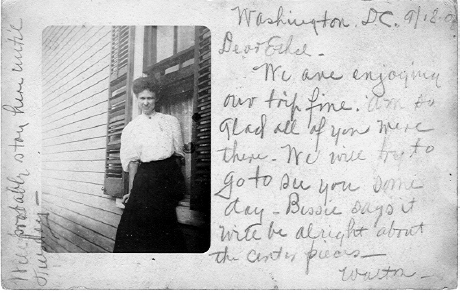 Washington. D.C. 9/12-0
Dear Ethel-
We are enjoying
our trip fine. Am so
glad all of you were
there. We will try to
go to see you some
day - Bessie says it
will be alright about
the center pieces-
Walton-
Will probable stay here until
Tuesday-